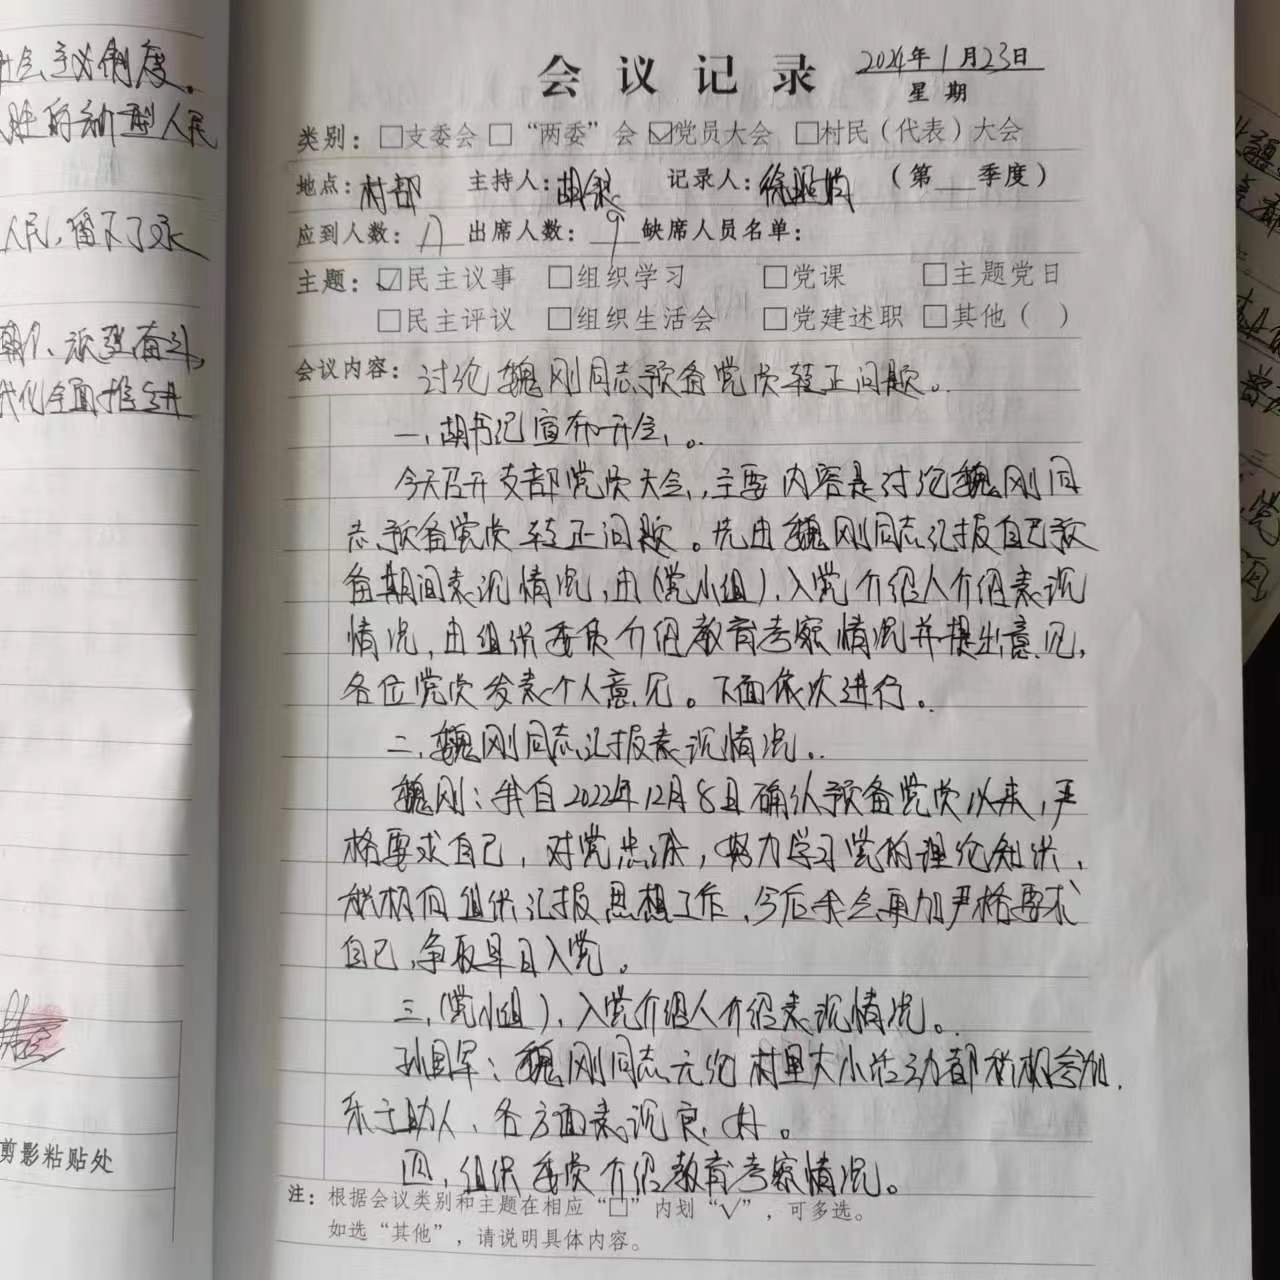 社会主义制度。
胜的新型人民
人民,留下了永
朝个、派强奋斗,
代化全面推进
剪影粘贴处
会议记录
2024年1月23日
星期
类别:□支委会 □“两委”会 ☑党员大会 □村民(代表)大会
地点:村部 主持人:胡 记录人:徐 (第__季度)
应到人数: 出席人数:9 缺席人员名单:
主题:☑民主议事 □组织学习 □党课 □主题党日
□民主评议 □组织生活会 □党建述职 □其他( )
会议内容:讨论魏刚同志预备党员转正问题。
一、胡书记宣布开会。
今天召开支部党员大会,主要内容是讨论魏刚同
志预备党员转正问题。先由魏刚同志汇报自己预
备期间表现情况,由(党小组)、入党介绍人介绍表现
情况,由组织委员介绍教育考察情况并提出意见,
各位党员发表个人意见。下面依次进行。
二、魏刚同志汇报表现情况。
魏刚:我自2022年12月8日确认预备党员以来,严
格要求自己,对党忠诚,努力学习党的理论知识,
积极向组织汇报思想工作,今后我会更加严格要求
自己,争取早日入党。
三、(党小组)、入党介绍人介绍表现情况。
孙国军:魏刚同志无论村里大小活动都积极参加,
乐于助人,各方面表现良好。
四、组织委员介绍教育考察情况。
注:根据会议类别和主题在相应“□”内划“√”,可多选。
如选“其他”,请说明具体内容。